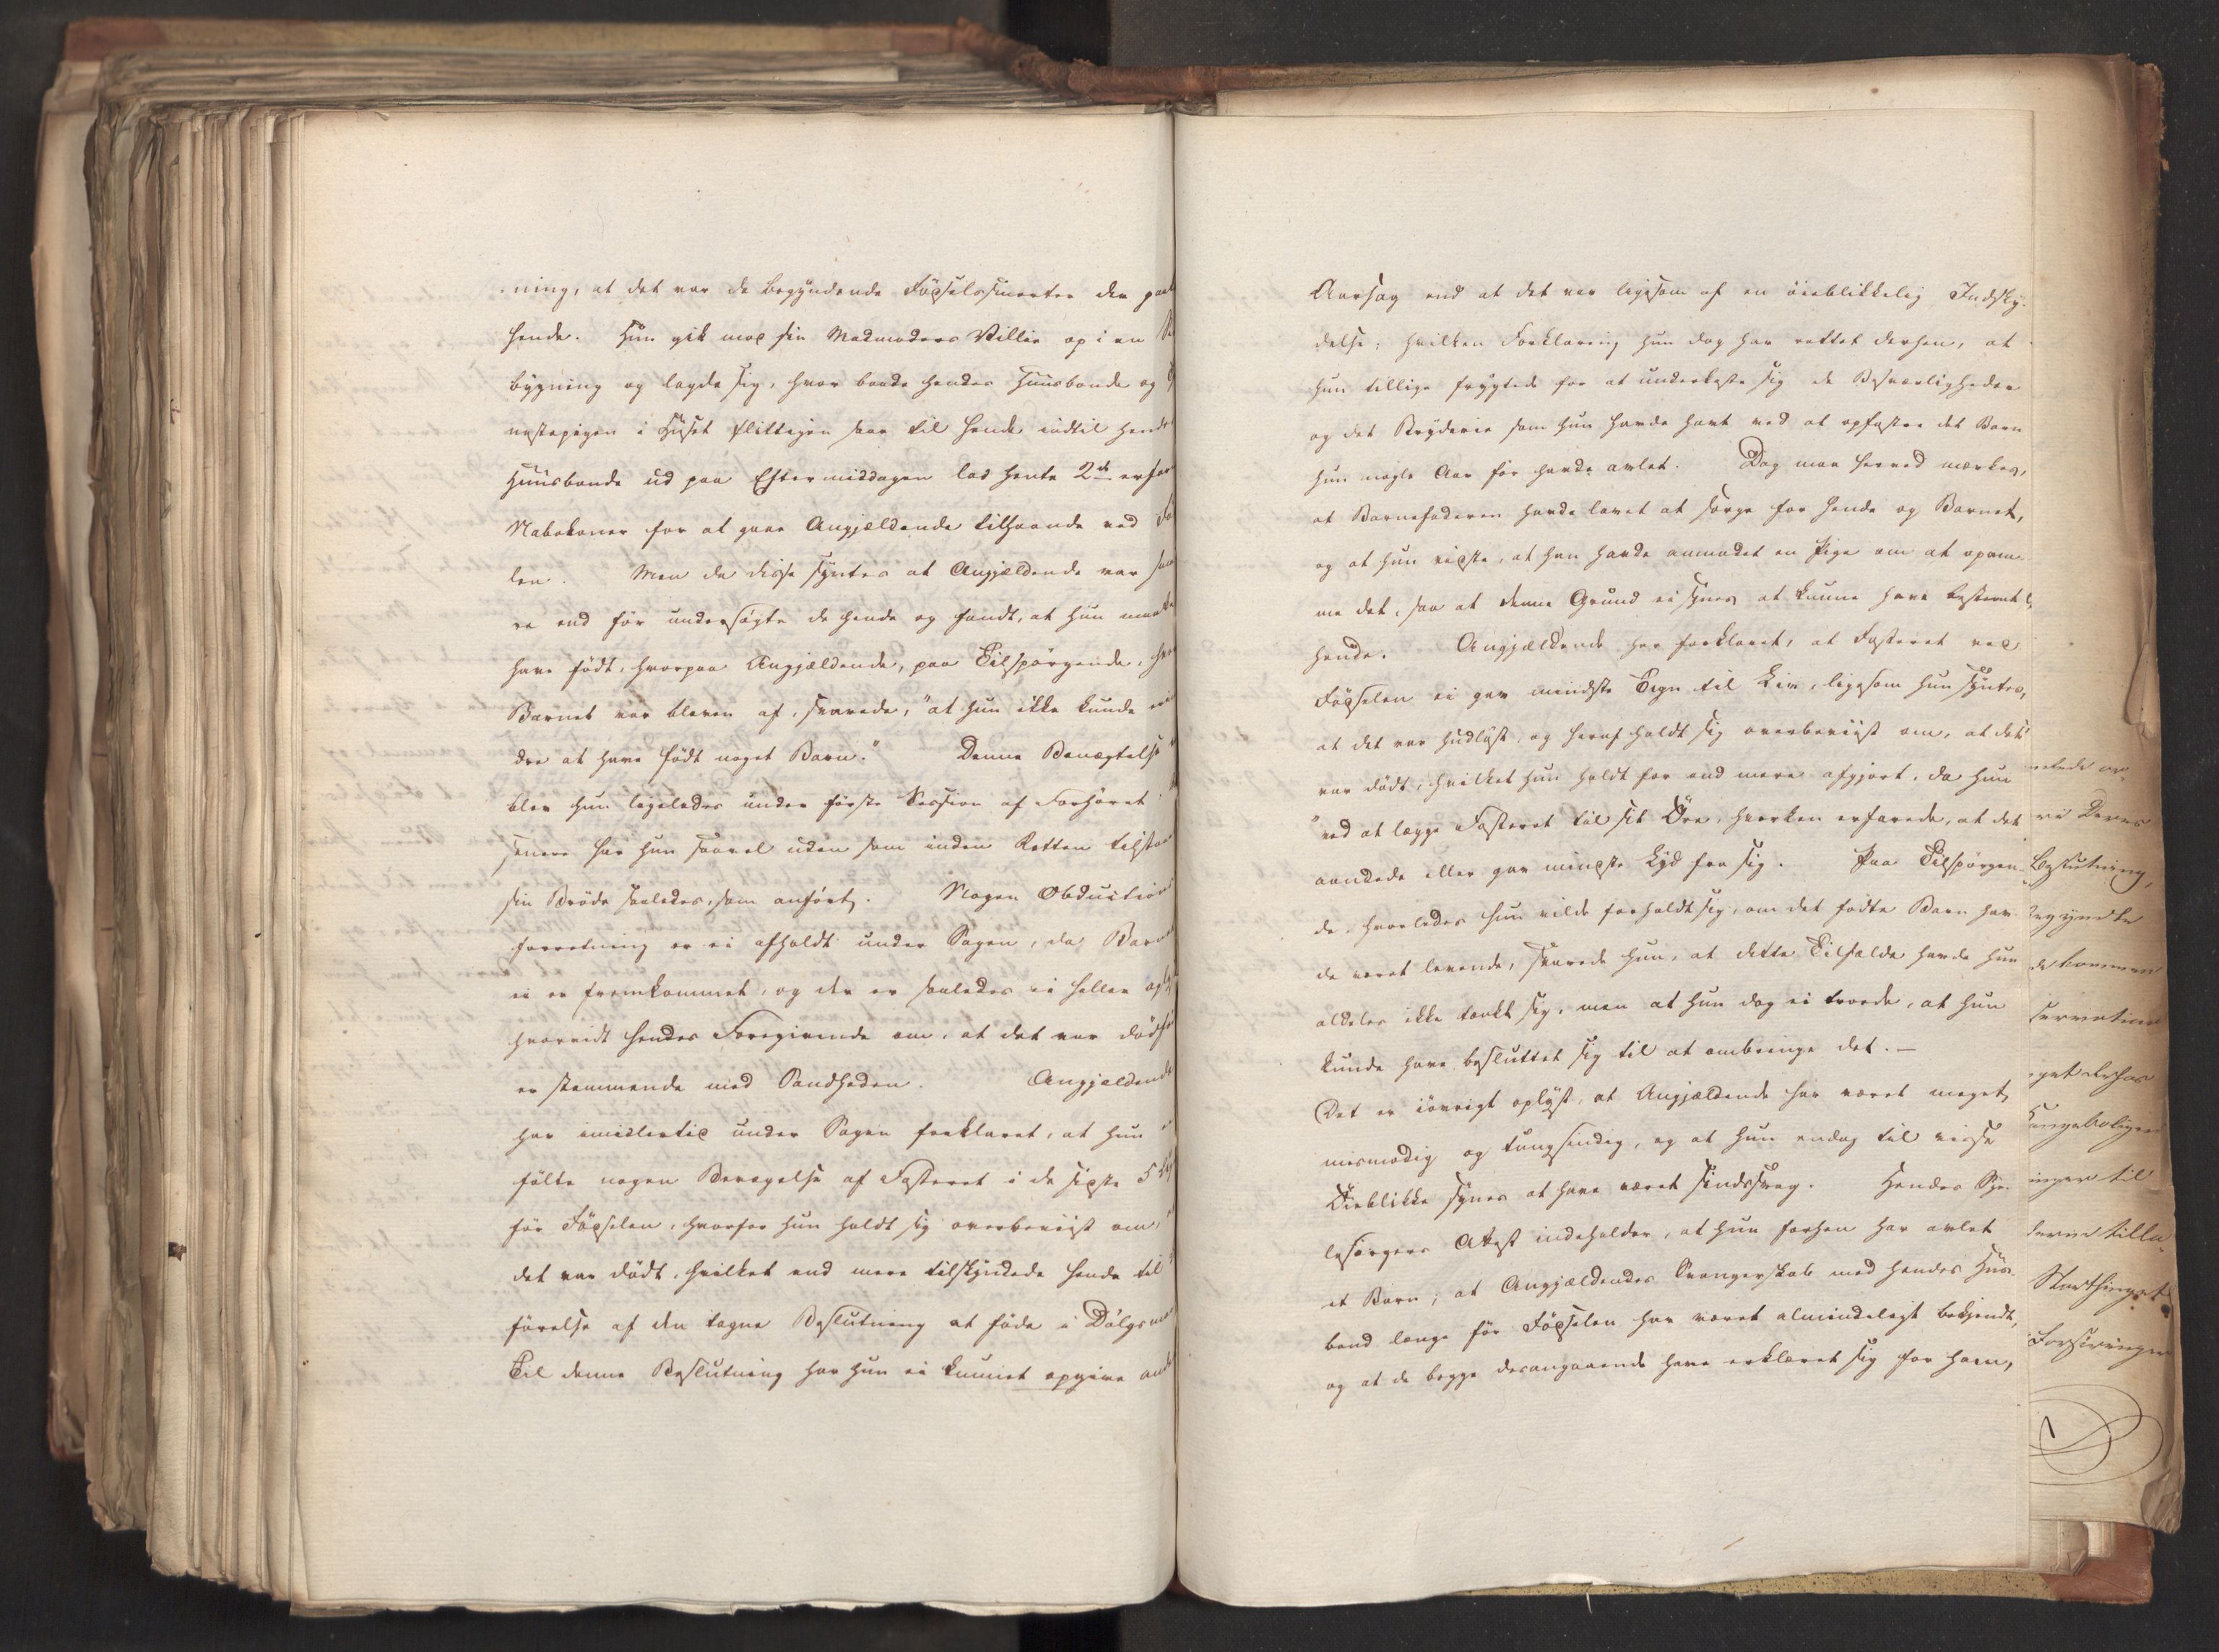 ning, at det var de begyndende Födselssmerter der paa
hende. Hun gik mod sin Madmoders Villie op i en
bygning og lagde sig, hvor baade hendes Huusbonde og
nestepigen i Huset flittigen saae til hende indtil hendes
Huusbonde ud paa Eftermiddagen lod hente 2de erfar
Nabokoner for at gaae Angjældende tilhaande ved Fö
len. Men da disse syntes at Angjældende var
re end för undersögte de hende og fandt, at hun maatte
have födt, hvorpaa Angjældende, paa Tilspörgende, hvor
Barnet var bleven af, svarede, "at hun ikke kunde erin
dre at have födt noget Barn." Denne Benægtelse
blev hun ligeledes under förste Session af Forhöret
senere har hun saavel uden som inden Retten tilstaa
sin Bröde saaledes, som anfört. Nogen Obductions
forretning er ei afholdt under Sagen, da Barnet
ei er fremkommet, og der er saaledes ei heller oply
hvorvidt hendes Foregivende om, at det var dödfö
er stemmende med Sandheden. Angjældende
har imidlertid under Sagen forklaret, at hun
fölte nogen Bevægelse af Fosteret i de sidste 5
för Födselen, hvorfor hun holdt sig overbeviist om,
det var dödt, hvilket end mere tilskyndede hende til
förelse af den tagne Beslutning at föde i Dölgsmaal
Til denne Beslutning har hun ei kunnet opgive anden
Aarsag end at det var ligesom af en öieblikkelig Indsky-
delse; hvilken Forklaring hun dog har rettet derhen, at
hun tillige frygtede for at underkaste sig de Besværligheder
og det Bryderie som hun havde havt ved at opfostre det Barn
hun nogle Aar för havde avlet. Dog maa herved mærkes,
at Barnefaderen havde lovet at sörge for hende og Barnet,
og at hun vidste, at han havde anmodet en Pige om at opam-
me det, saa at denne Grund ei synes at kunne have bestemt
hende. Angjældende har forklaret, at Fosteret ved
Födselen ei gav mindste Tegn til Liv, ligesom hun syntes,
at det var hudlöst, og heraf holdt sig overbeviist om, at det
var dödt, hvilket hun holdt for end mere afgjort, da hun
"ved at lægge Fosteret til sit Öre, hverken erfarede, at det
aandede eller gav mindste Lyd fra sig. Paa Tilspörgen-
de, hvorledes hun vilde forholdt sig, om det födte Barn hav-
de været levende, svarede hun, at dette Tilfælde havde hun
aldeles ikke tænkt sig, men at hun dog ei troede, at hun
kunde have besluttet sig til at ombringe det. —
Det er iövrigt oplyst, at Angjældende har været meget
mismodig og tungsindig, og at hun endog til visse
Öieblikke synes at have været sindssvag. Hendes Sjæ-
lesörgers Attest indeholder, at hun forhen har avlet
et Barn; at Angjældendes Svangerskab med hendes Huus-
bond længe för Födselen har været almindeligt bekjendt,
og at de begge desangaaende have erklæret sig for ham,
Beslutning,
begyndte
de kommen
inger til
Storthinget